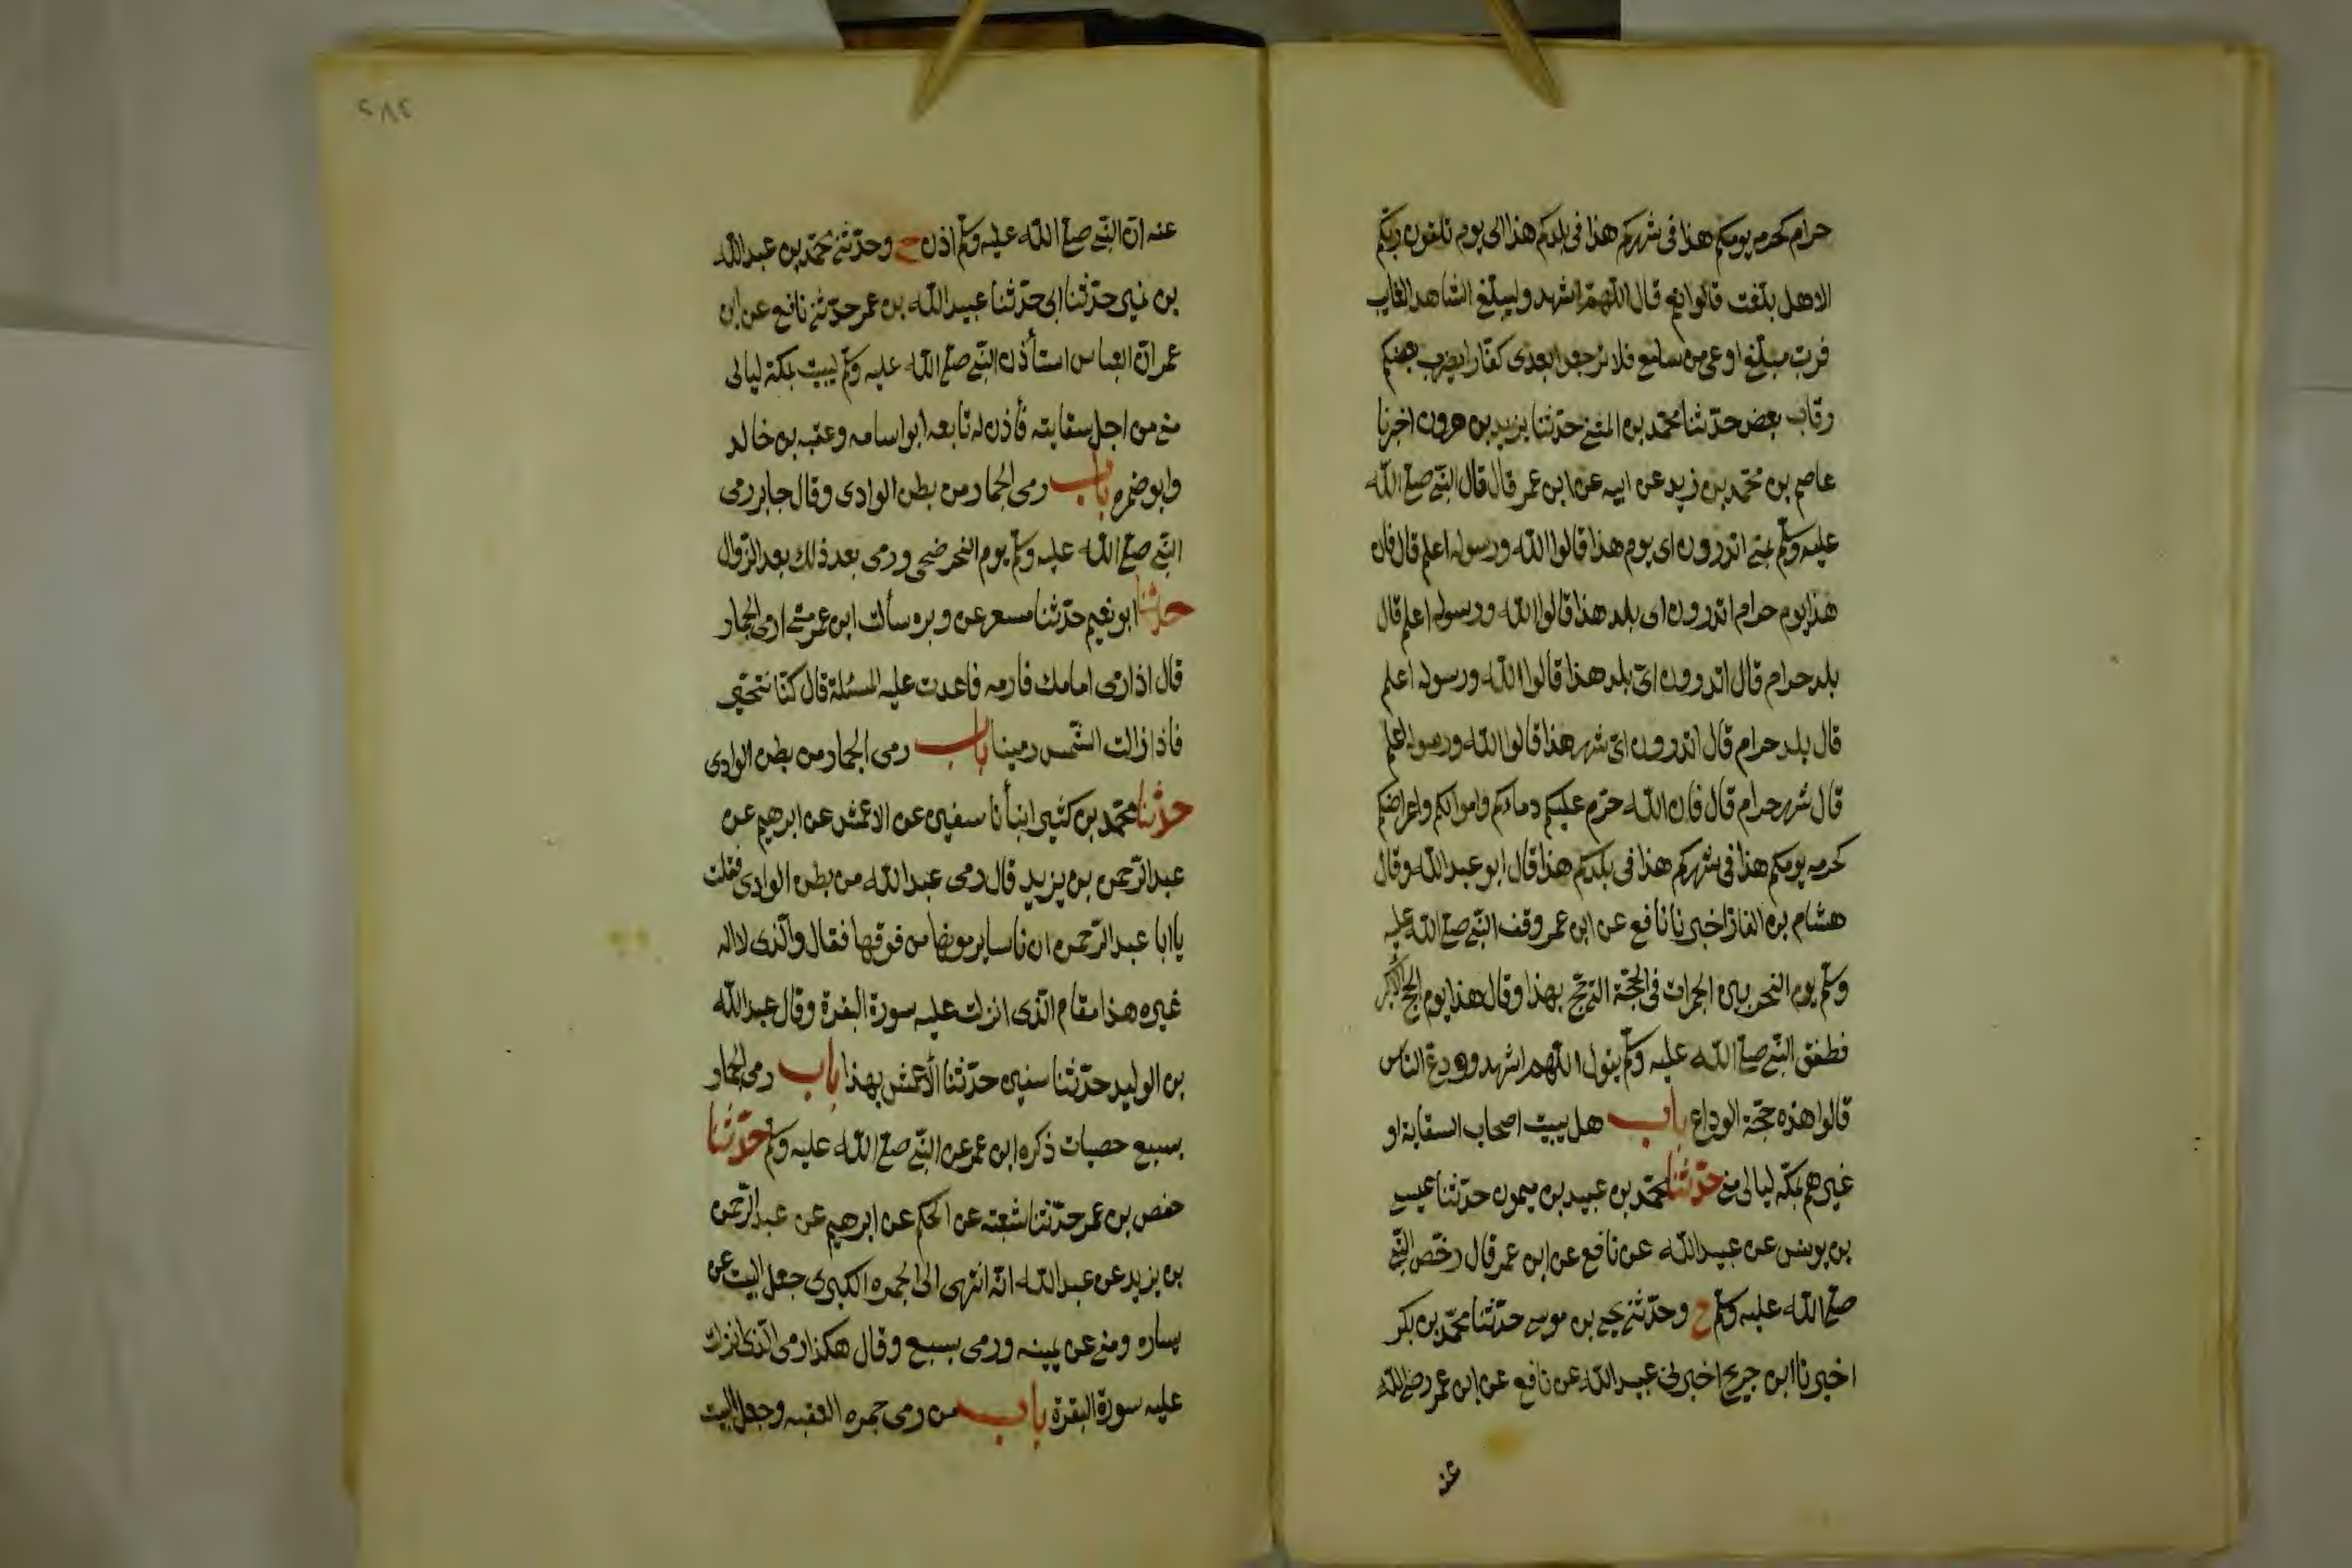 حرام كحرمة يومكم هذا في شهركم هذا في بلدكم هذا الى يوم تلقون ربكم
الا هل بلغت قالوا نعم قال اللهمّ اشهد وليبلّغ الشاهد الغايب
فربّ مبلّغ اوعى من سامع فلا ترجعوا بعدى كفّارا يضرب بعضكم
رقاب بعض حدّثنا محمّد بن المثنى حدّثنا يزيد بن هرون اخبرنا
عاصم بن محمّد بن زيد عن ابيه عن ابن عمر قال قال النّبي صلّى الله
عليه وسلّم بمنى اتدرون اى يوم هذا قالوا الله ورسوله اعلم قال فان
هذا يوم حرام اتدرون اى بلد هذا قالوا الله ورسوله اعلم قال
بلد حرام قال اتدرون اىّ بلد هذا قالوا الله ورسوله اعلم
قال بلد حرام قال اتدرون اىّ شهر هذا قالوا الله ورسوله اعلم
قال شهر حرام قال فان الله حرّم عليكم دماءكم واموالكم واعراضكم
كحرمه يومكم هذا في شهركم هذا في بلدكم هذا قال ابو عبد الله وقال
هشام بن الغاز اخبرنا نافع عن ابن عمر وقف النّبي صلّى الله عليه
وسلّم يوم النحر بين الجمرات في الحجّة التي حج بهذا وقال هذا يوم الحج الاكبر
فطفق النّبي صلّى الله عليه وسلّم يقول اللهم اشهد وودع النّاس
قالوا هذه حجّة الوداع باب هل يبيت اصحاب السقاية او
غيرهم بمكّه ليالى منى حدّثنا محمّد بن عبيد بن ميمون حدّثنا عيسى
بن يونس عن عبيد الله عن نافع عن ابن عمر قال رخّص النّبي
صلّى الله عليه وسلّم ح وحدّثني يحيى بن موسى حدّثنا محمّد بن بكر
اخبرنا ابن جريج اخبرني عبيد الله عن نافع عن ابن عمر رضى الله
عنه
٢٨٤
عنه انّ النّبي صلّى الله عليه وسلّم اذن ح وحدّثني محمّد بن عبد الله
بن نمير حدّثنا ابى حدّثنا عبيد الله بن عمر حدّثني نافع عن ابن
عمر انّ العباس استأذن النّبي صلّى الله عليه وسلّم ليبيت بمكة ليالى
منى من اجل سقايته فأذن له تابعه ابو اسامه وعقبه بن خالد
وابو ضمره باب رمى الجمار من بطن الوادى وقال جابر رمى
النّبي صلّى الله عليه وسلّم يوم النحر ضحى ورمى بعد ذلك بعد الزّوال
حدّثنا ابو نعيم حدّثنا مسعر عن وبره سألت ابن عمر متى ارمى الجمار
قال اذا رمى امامك فارمه فاعدت عليه المسئلة قال كنّا نتحيّن
فاذا زالت الشّمس رمينا باب رمى الجمار من بطن الوادى
حدّثنا محمّد بن كثير انبأنا سفين عن الاعمش عن ابرهيم عن
عبد الرّحمن بن يزيد قال رمى عبد الله من بطن الوادى فقلت
يا ابا عبد الرّحمن ان ناسا يرمونها من فوقها فقال والّذى لا اله
غيره هذا مقام الّذى انزلت عليه سورة البقرة وقال عبد الله
بن الوليد حدّثنا سفين حدّثنا الأعمش بهذا باب رمى الجمار
بسبع حصيات ذكره ابن عمر عن النّبي صلّى الله عليه وسلّم حدّثنا
حفص بن عمر حدّثنا شعبة عن الحكم عن ابرهيم عن عبد الرّحمن
بن يزيد عن عبد الله انّه انتهى الى الجمره الكبرى جعل البيت عن
يساره ومنى عن يمينه ورمى بسبع وقال هكذا رمى الّذى انزلت
عليه سورة البقرة باب من رمى جمره العقبه وجعل البيت